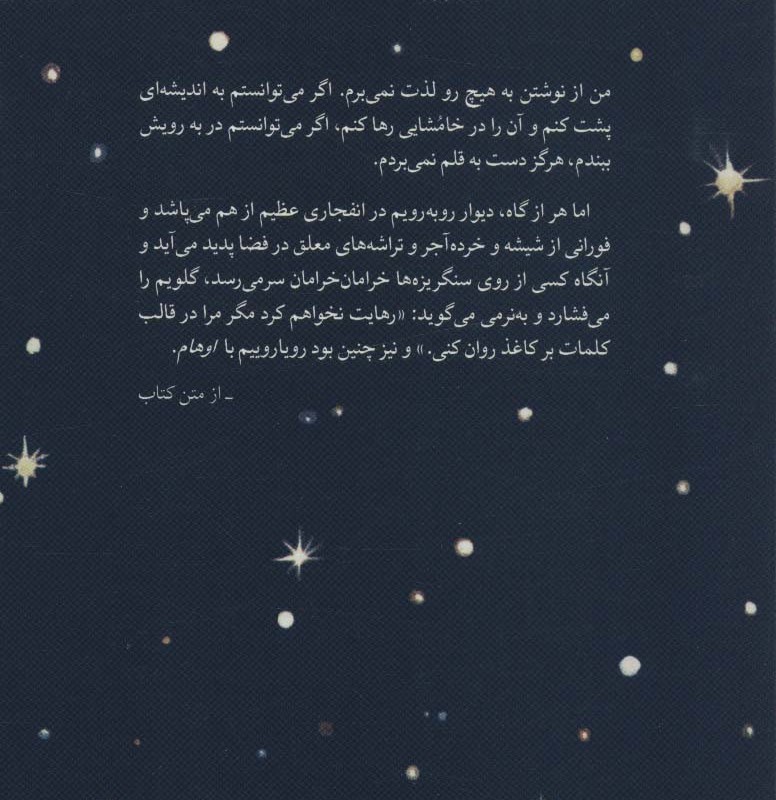 من از نوشتن به هیچ رو لذت نمی‌برم. اگر می‌توانستم به اندیشه‌ای
پشت کنم و آن را در خامُشایی رها کنم، اگر می‌توانستم در به رویش
ببندم، هرگز دست به قلم نمی‌بردم.
اما هر از گاه، دیوار روبه‌رویم در انفجاری عظیم از هم می‌پاشد و
فورانی از شیشه و خرده‌آجر و تراشه‌های معلق در فضا پدید می‌آید و
آنگاه کسی از روی سنگریزه‌ها خرامان‌خرامان سرمی‌رسد، گلویم را
می‌فشارد و به‌نرمی می‌گوید: «رهایت نخواهم کرد مگر مرا در قالب
کلمات بر کاغذ روان کنی.» و نیز چنین بود رویاروییم با اوهام.
ـ از متن کتاب